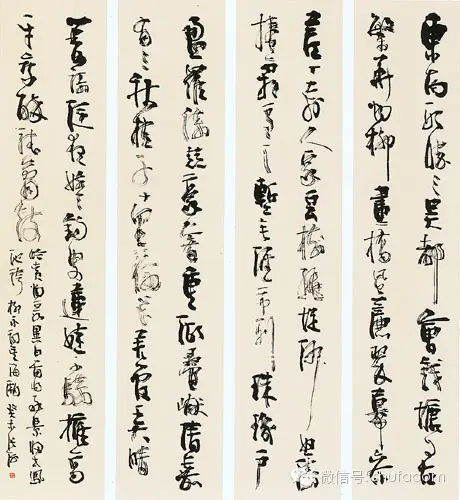 東南形勝三吴都會錢塘自古
繁華烟柳畫橋風簾翠幕參
差十万人家云樹繞堤沙怒濤
捲霜雪天塹無涯市列珠璣户
盈羅綺競豪奢重湖叠巘清嘉
有三秋桂子十里荷花羌管弄晴
菱歌泛夜嬉嬉釣叟蓮娃千騎擁高
牙乘醉聽簫鼓
吟賞烟霞異日圖將好景歸去鳳
池誇 柳永詞望海潮 癸未
微信号